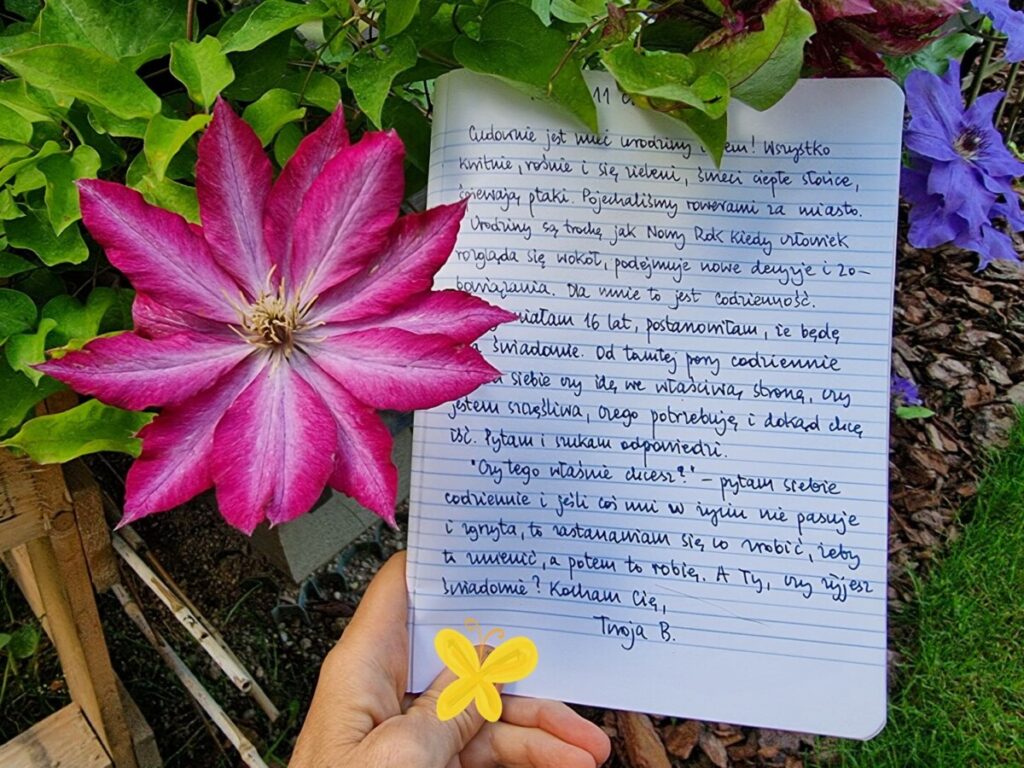 11
Cudownie jest mieć urodziny ! Wszystko
kwitnie, rośnie i się zieleni, świeci ciepłe słońce,
śpiewają ptaki. Pojechaliśmy rowerami za miasto.
Urodziny są trochę jak Nowy Rok kiedy człowiek
rozgląda się wokół, podejmuje nowe decyzje i zo-
bowiązania. Dla mnie to jest codzienność.
miałam 16 lat, postanowiłam, że będę
świadomie. Od tamtej pory codziennie
siebie czy idę we właściwą stronę, czy
jestem szczęśliwa, czego potrzebuję i dokąd chcę
iść. Pytam i szukam odpowiedzi.
"Czy tego właśnie chcesz?" - pytam siebie
codziennie i jeśli coś mi w życiu nie pasuje
i zgrzyta, to zastanawiam się co zrobić, żeby
to zmienić, a potem to robię. A Ty, czy żyjesz
świadomie? Kocham Cię,
Twoja B.